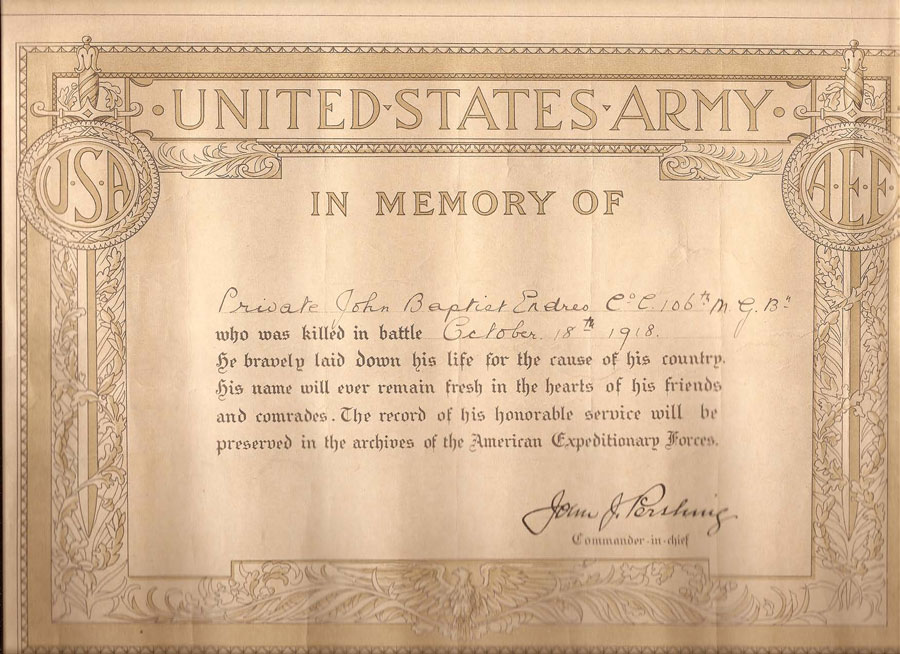 UNITED STATES ARMY
U·S·A
A·E·F
IN MEMORY OF
Private John Baptist Endres Co C. 106th M. G. Bn
who was killed in battle October 18th 1918.
He bravely laid down his life for the cause of his country.
His name will ever remain fresh in the hearts of his friends
and comrades. The record of his honorable service will be
preserved in the archives of the American Expeditionary Forces.
John J. Pershing
Commander-in-chief